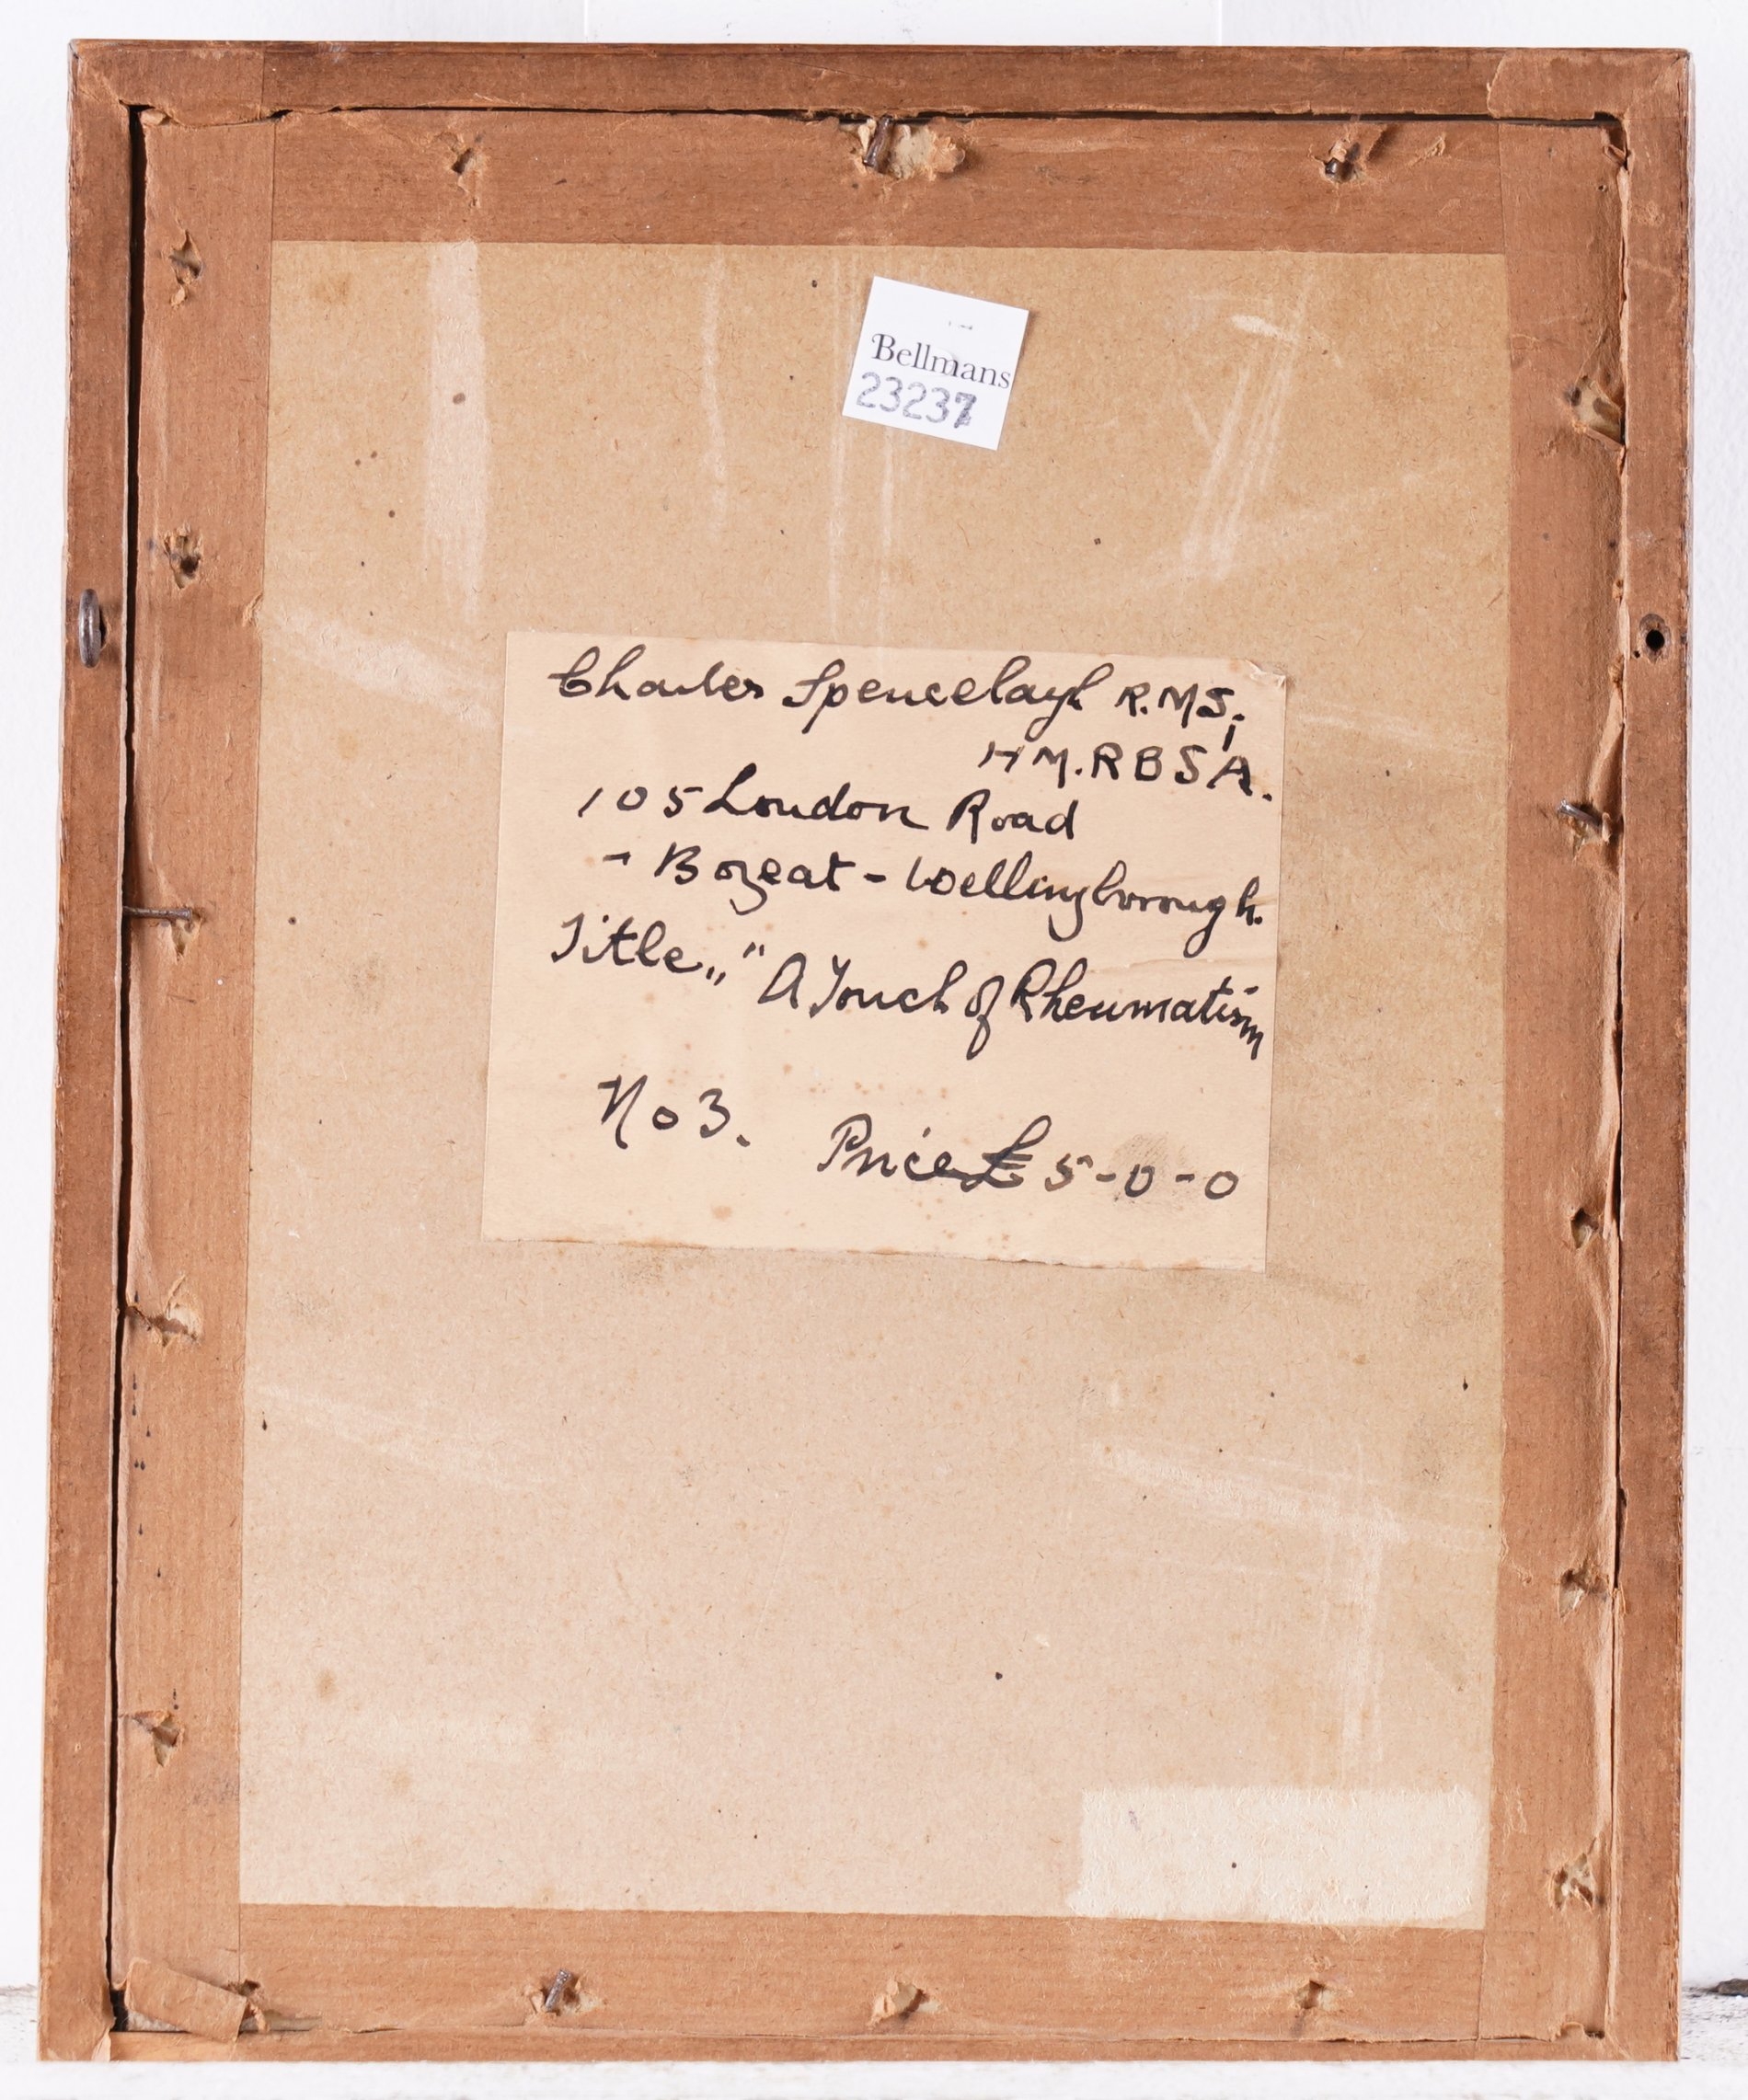 Bellmans
23237
Charles Spencelayh R.M.S;
H M. R B S A.
105 London Road
- Bozeat - Wellingborough.
Title,, " A Touch of Rheumatism
No 3.
Price £ 5-0-0